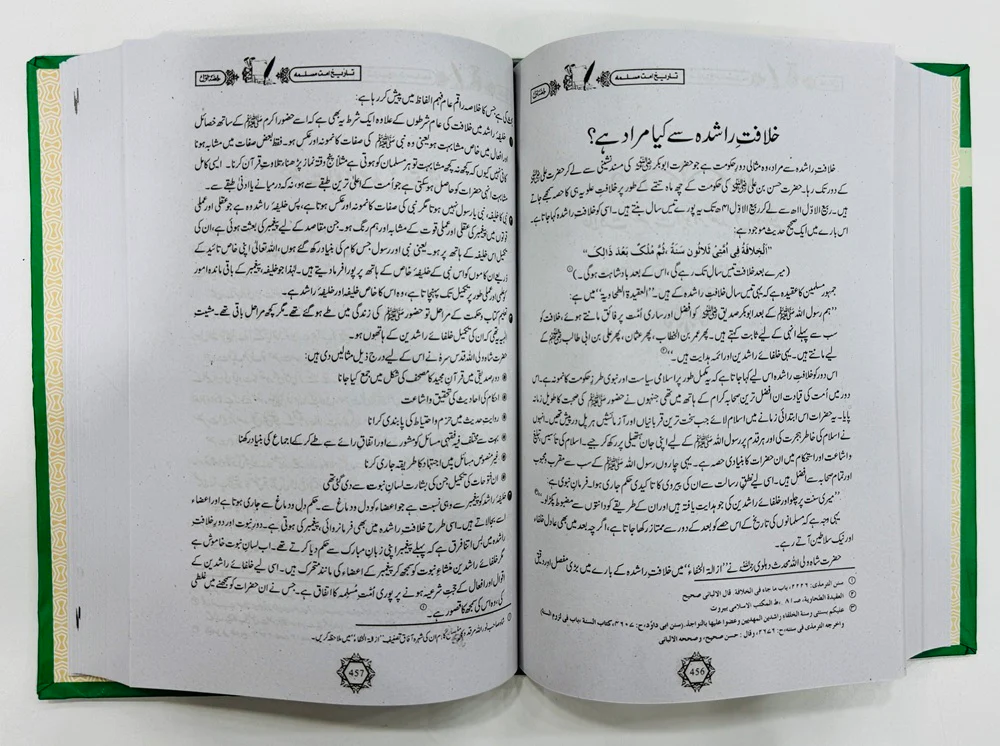 تاریخ امت مسلمہ
حصّہ اوّل
خلافتِ راشدہ سے کیا مراد ہے؟
خلافتِ راشدہ سے مراد، وہ مثالی دورِ حکومت ہے جو حضرت ابوبکر رضی اللہ عنہ کی مسند نشینی سے لے کر حضرت علی رضی اللہ عنہ
کے دور تک رہا۔ حضرت حسن بن علی رضی اللہ عنہ کی حکومت کے چھ ماہ تتمے کے طور پر خلافتِ علویہ ہی کا حصہ سمجھے جاتے
ہیں۔ ربیع الاوّل ۱۱ھ سے لے کر ربیع الاوّل ۴۱ھ تک یہ پورے تیس سال بنتے ہیں۔ اسی کو خلافتِ راشدہ کہا جاتا ہے۔
اس بارے میں ایک صحیح حدیث موجود ہے:
”اَلْخِلَافَةُ فِی اُمَّتِیْ ثَلَاثُوْنَ سَنَةً ، ثُمَّ مُلْکٌ بَعْدَ ذَالِکَ“
(میرے بعد خلافت تیس سال تک رہے گی، اس کے بعد بادشاہت ہوگی۔)①
جمہور مسلمین کا عقیدہ ہے کہ یہی تیس سال خلافتِ راشدہ کے ہیں۔ ”العقیدۃ الطحاویۃ“ میں ہے:
”ہم رسول اللہ ﷺ کے بعد ابوبکر صدیق رضی اللہ عنہ کو افضل اور ساری اُمت پر فائق مانتے ہوئے، خلافت کو
سب سے پہلے انہی کے لیے ثابت کہتے ہیں۔ پھر عمر بن الخطاب، پھر عثمان، پھر علی بن ابی طالب رضی اللہ عنہم کے
لیے مانتے ہیں۔ یہی خلفائے راشدین اور ائمہ ہدایت ہیں۔“②
اس دور کو خلافتِ راشدہ اس لیے کہا جاتا ہے کہ یہ مکمل طور پر اسلامی سیاست اور نبوی طرزِ حکومت کا نمونہ ہے۔ اس
دور میں اُمت کی قیادت ان افضل ترین صحابہ کرام کے ہاتھ میں تھی جنہوں نے حضور ﷺ کی صحبت کا طویل زمانہ
پایا۔ یہ حضرات اس ابتدائی زمانے میں اسلام لائے جب سخت ترین قربانیاں اور آزمائشیں ہر پل درپیش تھیں۔ انہوں
نے اسلام کی خاطر ہجرت کی اور ہر قدم پر رسول اللہ ﷺ کے لیے اپنی جان ہتھیلی پر رکھ کر جیے۔ اسلام کی تاسیس، تبلیغ
و اشاعت اور استحکام میں ان حضرات کا بنیادی حصہ ہے۔ یہی چاروں رسول اللہ ﷺ کے سب سے مقرب و محبوب
اور تمام صحابہ سے افضل ہیں۔ اسی لیے نطقِ رسالت سے ان کی پیروی کا تاکیدی حکم جاری ہوا۔ فرمانِ نبوی ہے:
”میری سنت پر چلو اور خلفائے راشدین کی جو ہدایت یافتہ ہیں اور ان کے طریقے کو دانتوں سے مضبوط پکڑ لو۔“③
یہی وجہ ہے کہ مسلمانوں کی تاریخ کے اس حصے کو بعد کے دور سے ممتاز رکھا جاتا ہے، اگرچہ بعد میں بھی عادل خلفاء
اور نیک سلاطین آتے رہے۔
حضرت شاہ ولی اللہ محدث دہلوی رحمہ اللہ نے ”ازالۃ الخفاء“ میں خلافتِ راشدہ کے بارے میں بڑی مفصل اور دقیق
① سنن الترمذی: ۲۲۲۶، باب ما جاء فی الخلافة. قال الالبانی صحیح
② العقیدة الطحاویة، صـ ۸۱، ط المکتب الاسلامی بیروت
③ علیکم بسنتی وسنة الخلفاء الراشدین المهدیین وعضوا علیها بالنواجذ. (سنن ابی داؤد، ح: ۴۶۰۷، کتاب السنة، باب فی لزوم السنة
واخرجه الترمذی فی سننه، ح: ۲۶۷۶، وقال: حسن صحیح، وصححه الالبانی
456
تاریخ امت مسلمہ
حصّہ اوّل
کی ہے، جس کا خلاصہ راقم عام فہم الفاظ میں پیش کر رہا ہے:
خلیفۂ راشد میں خلافت کی عام شرطوں کے علاوہ ایک شرط یہ بھی ہے کہ اسے حضور اکرم ﷺ کے ساتھ خصائل
اور افعال میں خاص مشابہت ہو یعنی وہ نبی ﷺ کی صفات کا نمونہ اور عکس ہو۔ فقط بعض صفات میں مشابہ ہونا
کافی نہیں کیوں کہ کچھ نہ کچھ مشابہت تو ہر مسلمان کو ہوتی ہے مثلاً پنج وقتہ نماز پڑھنا، تلاوتِ قرآن کرنا۔ ایسی کامل
مشابہت انہی حضرات کو حاصل ہو سکتی ہے جو اُمت کے اعلیٰ ترین طبقے سے ہوں، نہ کہ درمیانے یا ادنیٰ طبقے سے۔
نبی کا خلیفہ، نبی یا رسول نہیں ہوتا مگر نبی کی صفات کا نمونہ اور عکس ہوتا ہے، پس خلیفۂ راشد وہ ہے جو عقلی اور عملی
قوتوں میں پیغمبر کی عقلی اور عملی قوت کے مشابہ اور ہم رنگ ہو۔ جن مقاصد کے لیے پیغمبر کی بعثت ہوتی ہے، ان کی
تکمیل اس خلیفہ کے ہاتھ پر ہو۔ یعنی نبی اور رسول جس کام کی بنیاد رکھ گئے ہوں، اللہ تعالیٰ اپنی خاص تائید کے
ذریعے ان کاموں کو اس نبی کے خلیفۂ خاص کے ہاتھ پر پورا فرما دیتے ہیں۔ لہٰذا جو خلیفہ، پیغمبر کے باقی ماندہ امور
کو علمی اور عملی طور پر تکمیل تک پہنچاتا ہے، وہ اس کا خاص خلیفہ اور خلیفۂ راشد ہے۔
تعلیمِ کتاب و حکمت کے مراحل تو حضور ﷺ کی زندگی میں طے ہو گئے تھے۔ مگر کچھ مراحل باقی تھے۔ مشیت
الٰہیہ یہ تھی کہ ان کی تکمیل خلفائے راشدین کے ہاتھوں ہو۔
حضرت شاہ ولی اللہ قدس سرہٗ نے اس کے لیے درج ذیل مثالیں دی ہیں:
دورِ صدیقی میں قرآنِ مجید کا مصحف کی شکل میں جمع کیا جانا
احکام کی احادیث کی تحقیق و اشاعت
روایتِ حدیث میں حزم و احتیاط کی پابندی کرانا
بہت سے مختلف فیہ فقہی مسائل کو مشورے اور اتفاق رائے سے طے کر کے اجماع کی بنیاد رکھنا
غیر منصوص مسائل میں اجتہاد کا طریقہ جاری کرنا
ان فتوحات کی تکمیل جن کی بشارت لسانِ نبوت سے دی گئی تھی
خلیفۂ راشد کو پیغمبر سے وہی نسبت ہے جو اعضاء کو دل و دماغ سے۔ حکم دل و دماغ سے جاری ہوتا ہے اور اعضاء
اسے بجا لاتے ہیں۔ اسی طرح خلافتِ راشدہ میں بھی فرمانروائی پیغمبر کی ہوتی ہے۔ دورِ نبوت اور دورِ خلافت
راشدہ میں بس اتنا فرق ہے کہ پہلے پیغمبر اپنی زبانِ مبارک سے حکم دیا کرتے تھے۔ اب لسانِ نبوت خاموش ہے
مگر خلفائے راشدین منشاءِ نبوت کو سمجھ کر پیغمبر کے اعضاء کی مانند متحرک ہیں۔ اسی لیے خلفائے راشدین کے
اقوال اور افعال کے حجتِ شرعیہ ہونے پر پوری اُمتِ مُسلمہ کا اتفاق ہے۔ جس نے ان حضرات کو سمجھنے میں غلطی
کی، وہ اس کی سمجھ کا قصور ہے۔①
کی شہرۂ آفاق تصنیف ”ازالۃ الخفاء“ میں ملاحظہ کریں۔
457